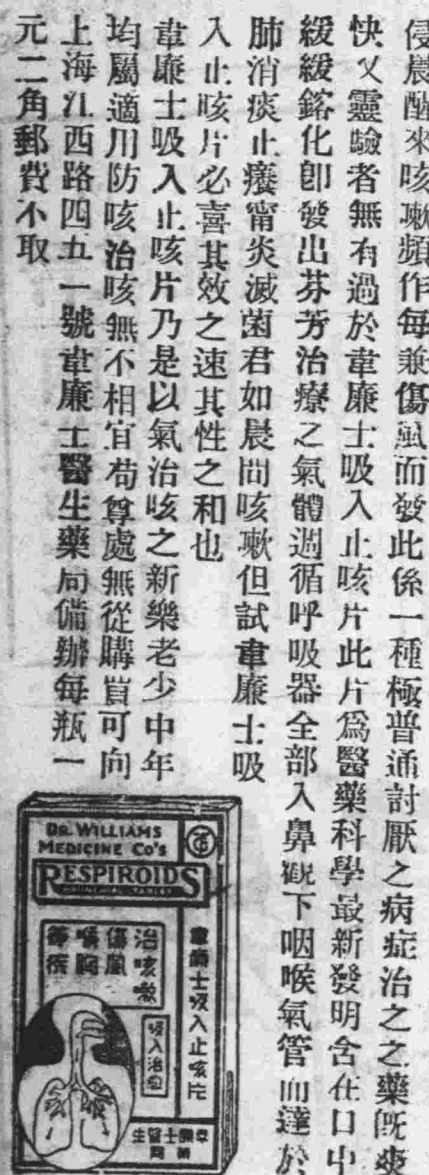 侵晨醒來咳嗽頻作每兼傷風而發此係一種極普通討厭之病症治之之藥既爽
快又靈驗者無有過於韋廉士吸入止咳片此片爲醫藥科學最新發明含在口中
緩緩鎔化卽發出芬芳治療之氣體週循呼吸器全部入鼻觀下咽喉氣管而達於
肺消痰止癢甯炎滅菌君如晨間咳嗽但試韋廉士吸
入止咳片必喜其效之速其性之和也
韋廉士吸入止咳片乃是以氣治咳之新樂老少中年
均屬適用防咳治咳無不相宜苟尊處無從購買可向
上海江西路四五一號韋廉士醫生藥局備辦每瓶一
元二角郵費不取
DR. WILLIAMS
MEDICINE CO'S
RESPIROIDS
韋廉士吸入止咳片
治咳嗽
傷風
喉胸
等疾
吸入治疴
韋廉士醫生藥局